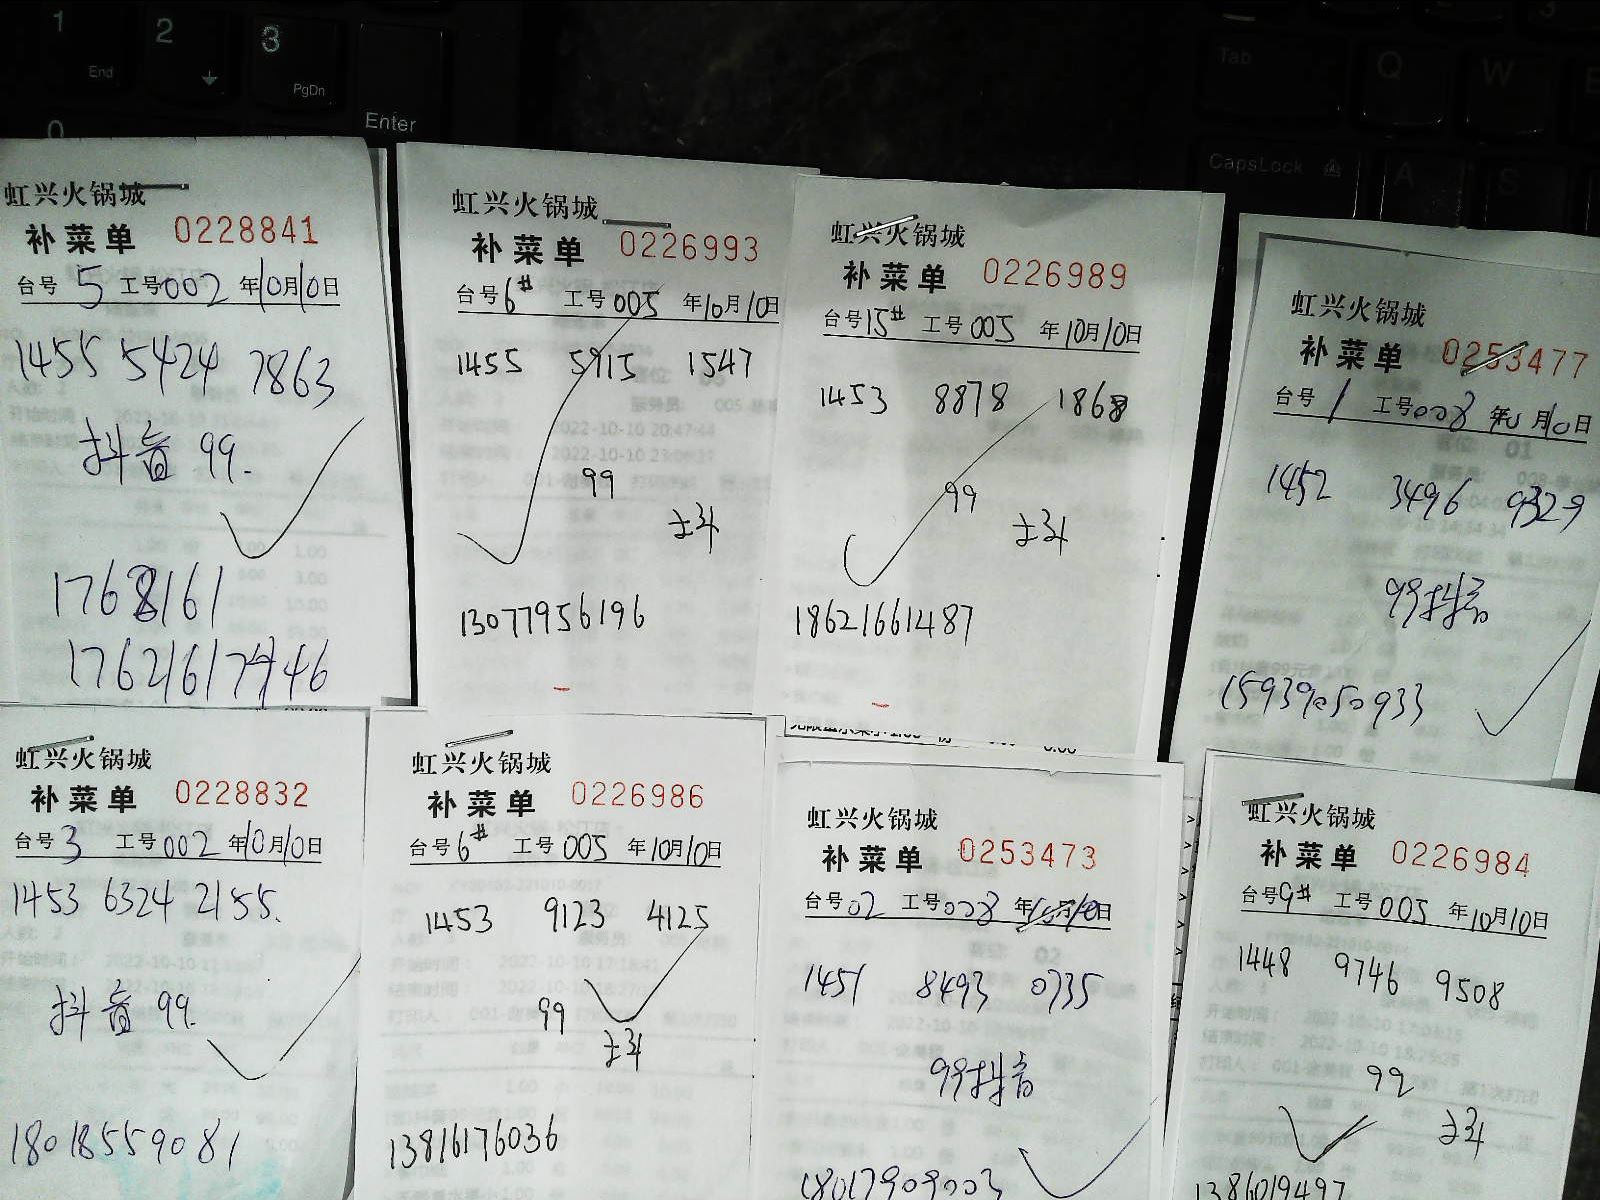 1
End
2
3
PgDn
0
Enter
Tab
Q
W
E
CapsLock
A
S
虹兴火锅城
补菜单 0228841
台号 5 工号 002 年10月10日
1455 5424 7863
抖音 99.
1768161
虹兴火锅城
补菜单 0226993
台号 6# 工号 005 年10月10日
1455 5915 1547
99
抖
13077956196
虹兴火锅城
补菜单 0226989
台号 15# 工号 005 年10月10日
1453 8878 1868
99
抖
18621661487
虹兴火锅城
补菜单 0253477
台号 1 工号 008 年10月10日
1452 3496 9329
99抖音
15939050933
虹兴火锅城
补菜单 0228832
台号 3 工号 002 年10月10日
1453 6324 2155.
抖音 99.
18018559081
虹兴火锅城
补菜单 0226986
台号 6# 工号 005 年10月10日
1453 9123 4125
99
抖
13816176036
虹兴火锅城
补菜单 0253473
台号 02 工号 008 年10月10日
1451 8493 0735
99抖音
18017909003
虹兴火锅城
补菜单 0226984
台号 9# 工号 005 年10月10日
1448 9746 9508
99
抖
1386019497